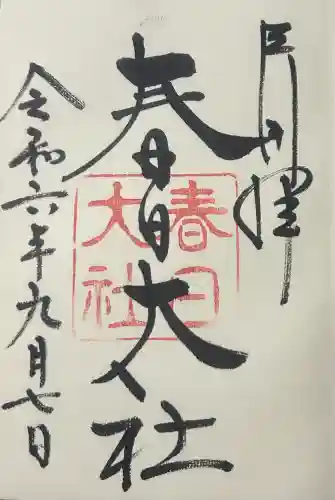 奉拝
春日大社
春日大社
令和六年九月七日